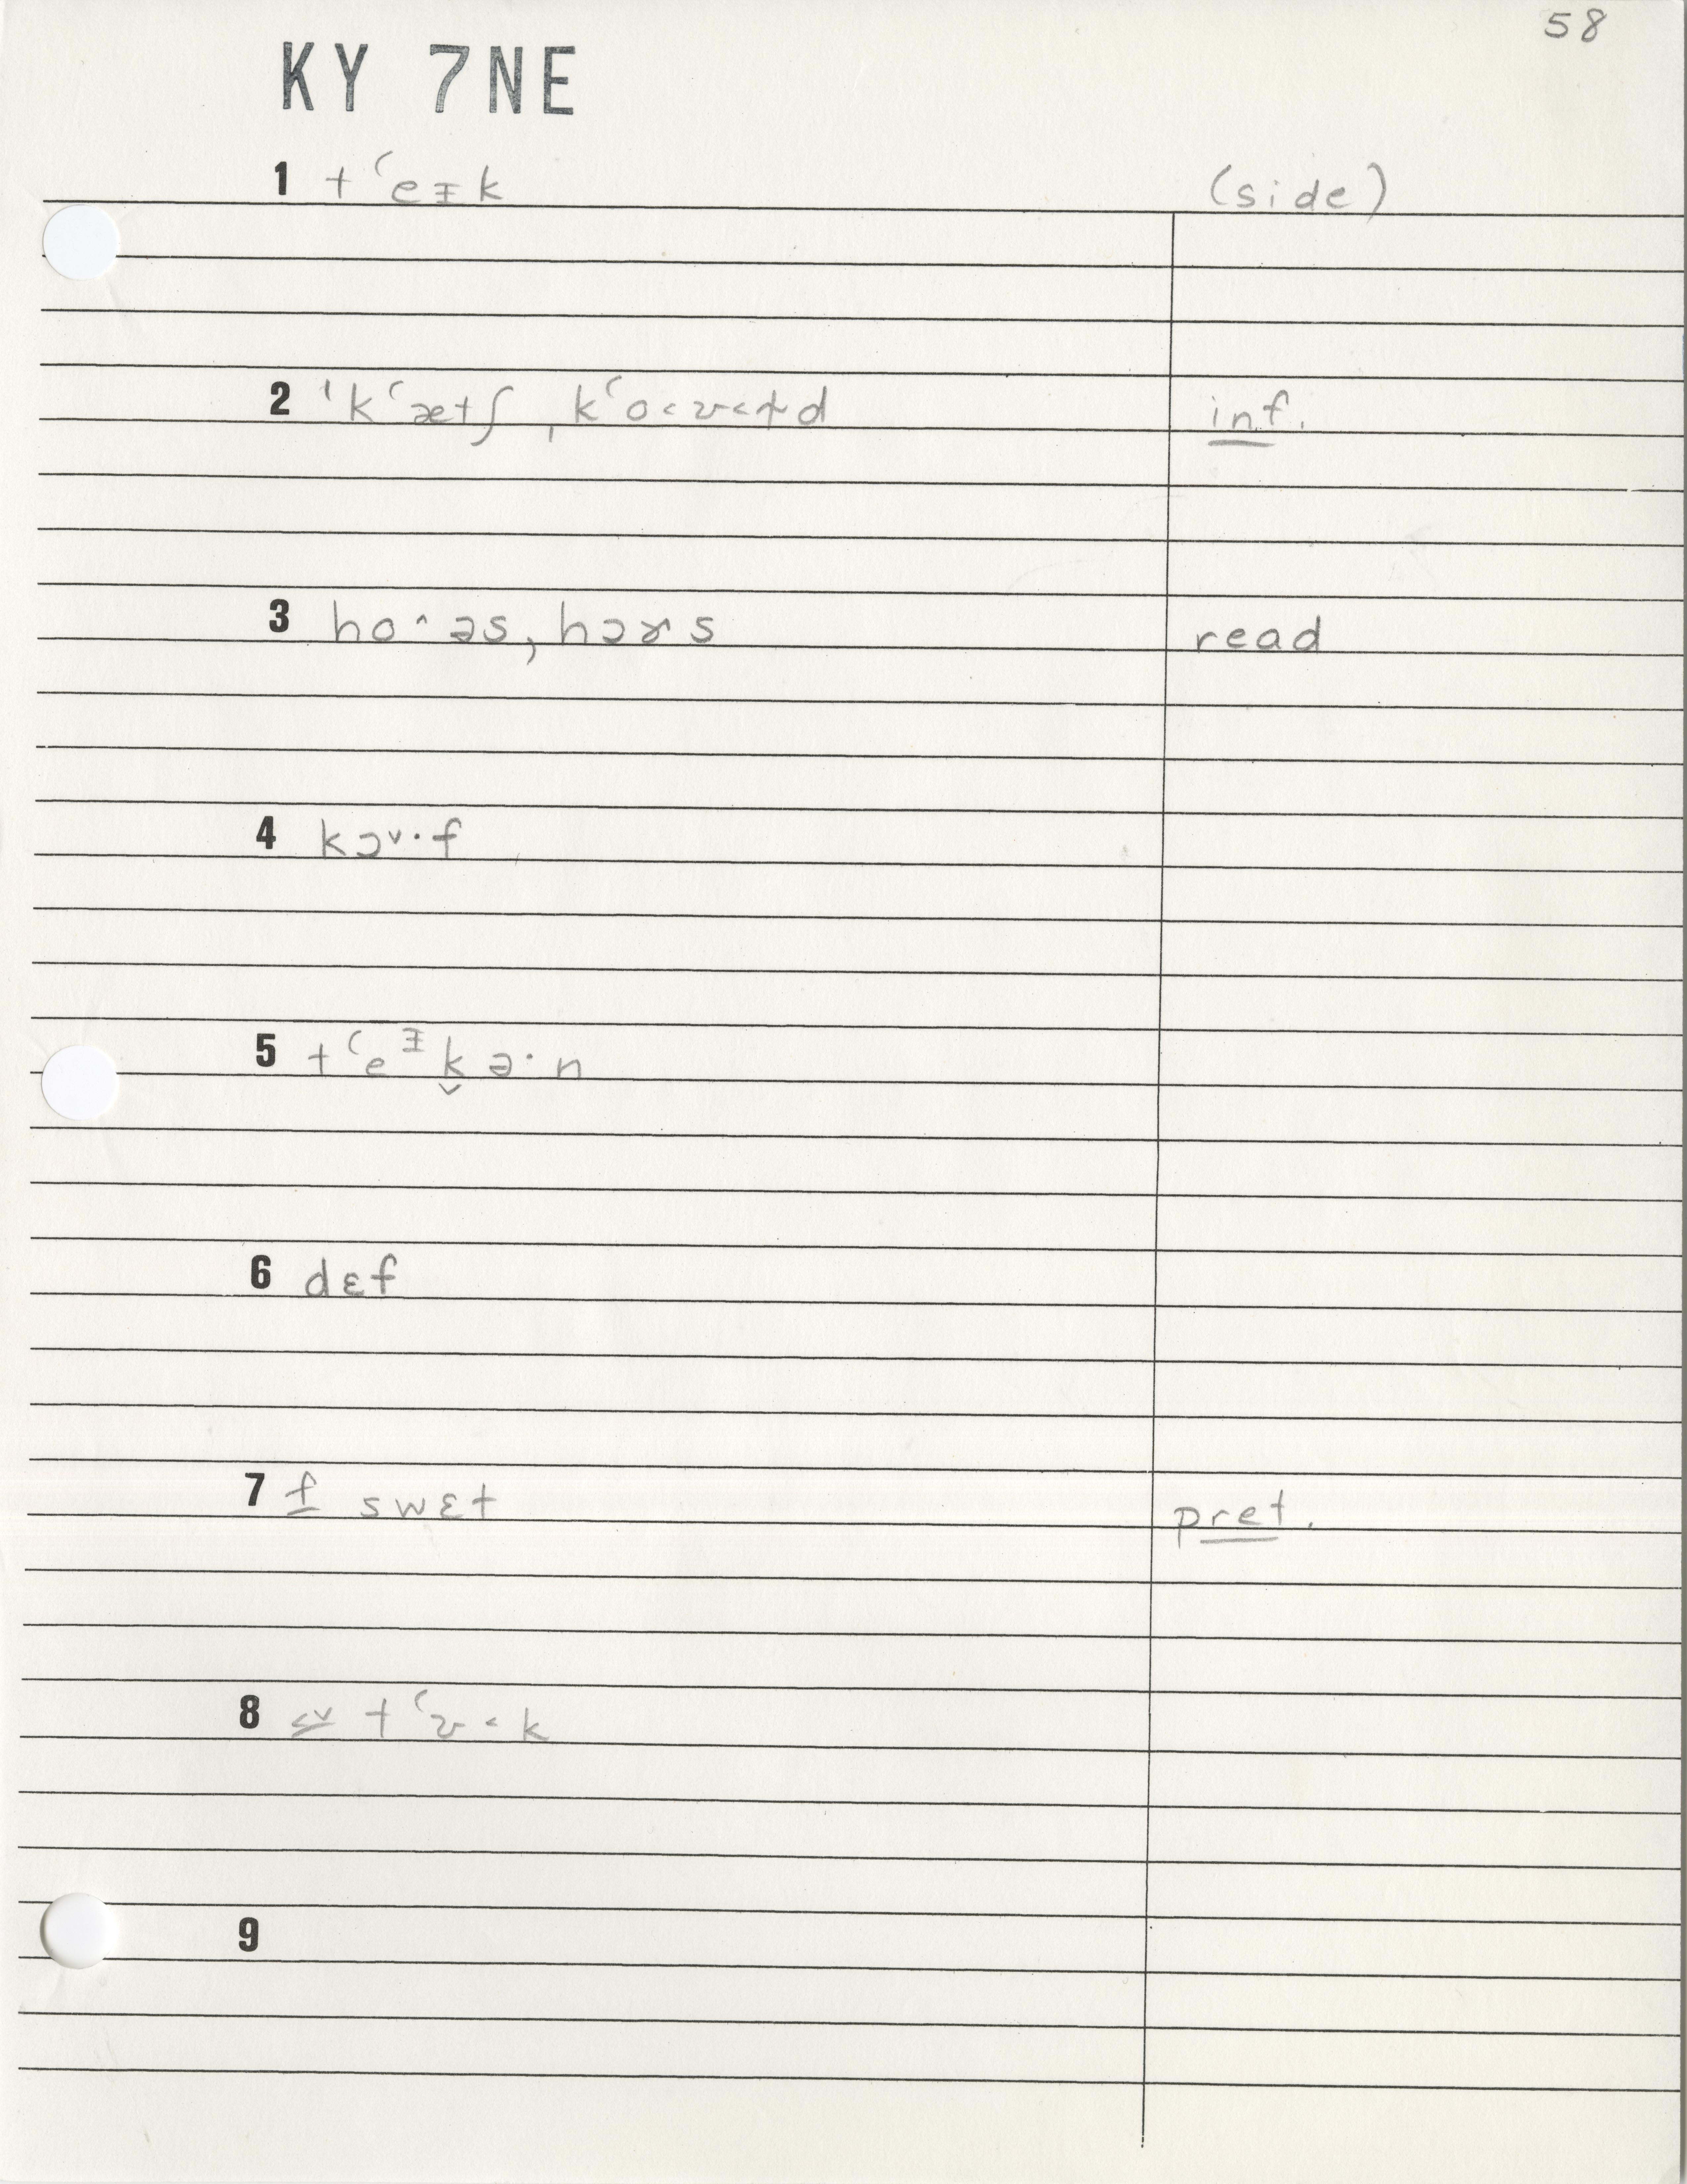 58
KY 7NE
1 tʽeᵻk (side)
2 ˈkʽætʃˌkʽo˂ʊ˂ɫd inf.
3 ho^əs, hɔɚs read
4 kɔ˅·f
5 tʽeᵻk̬ə·n
6 dɛf
7 f swɛt pret.
8 tʽʊ˂k
9